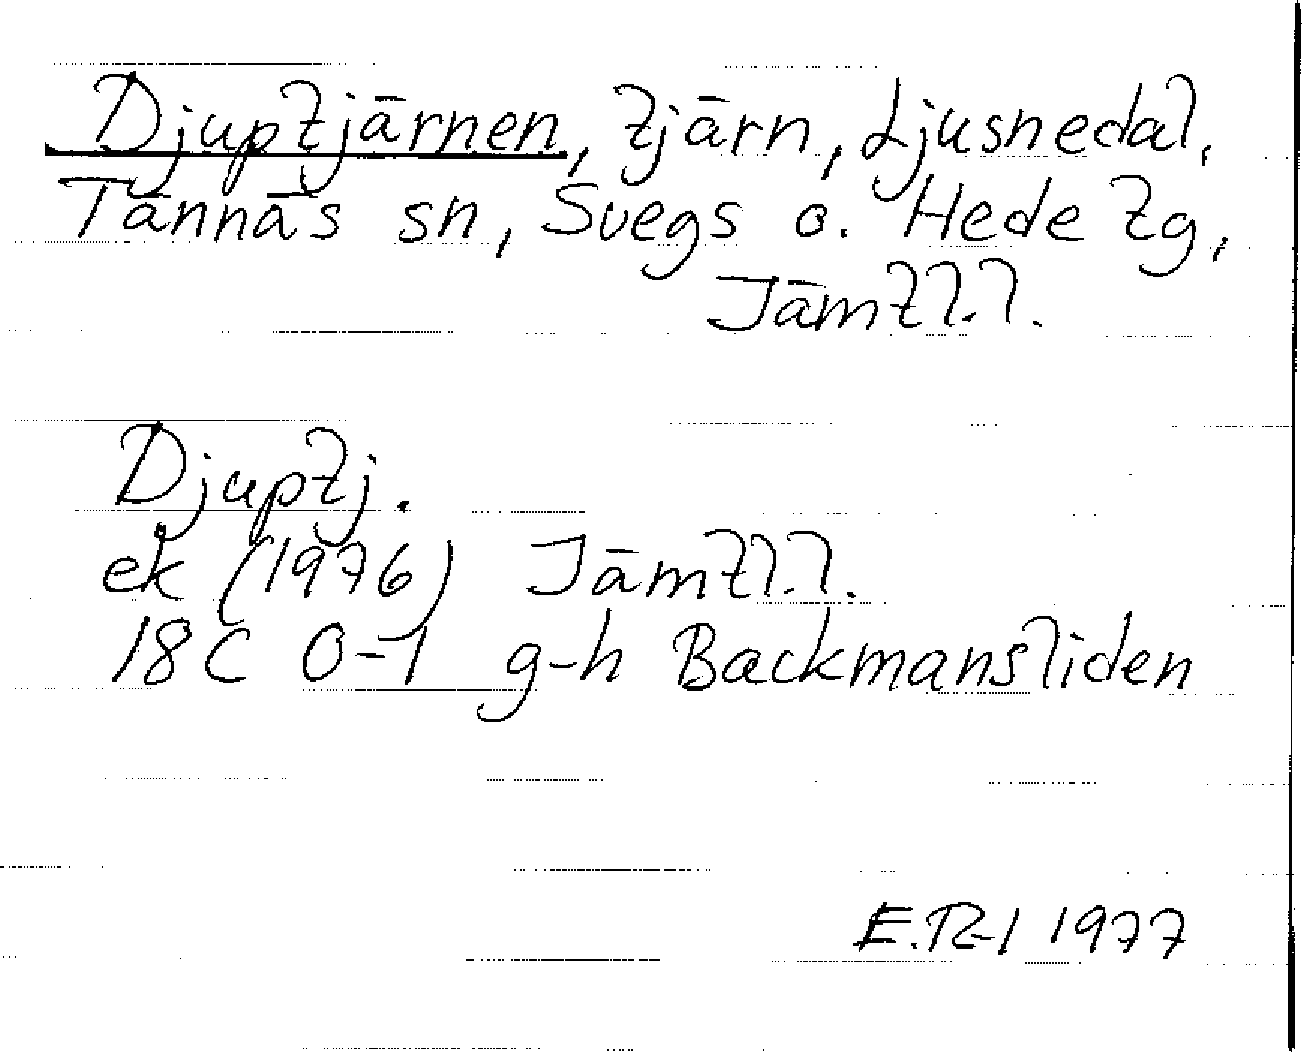 Djuptjärnen, tjärn, Ljusnedal,
Tännäs sn, Svegs o. Hede tg,
Jämtl.l.
Djuptj.
ek (1976) Jämtl.l.
18C 0-1 g-h Backmansliden
E.R-l 1977